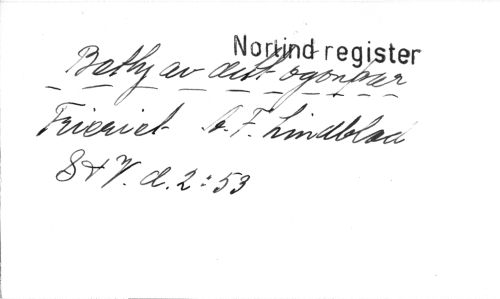 Norlind register
Betty av ditt ögonpar
Frieriet A. F. Lindblad
S & V. d. 2:53